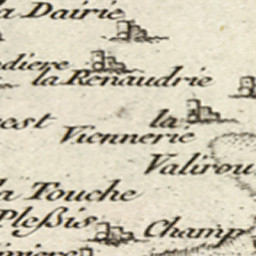 la Dairie
diere
la Renaudrie
est
la
Viennerie
Valirou
la Touche
Pleßis
Champ